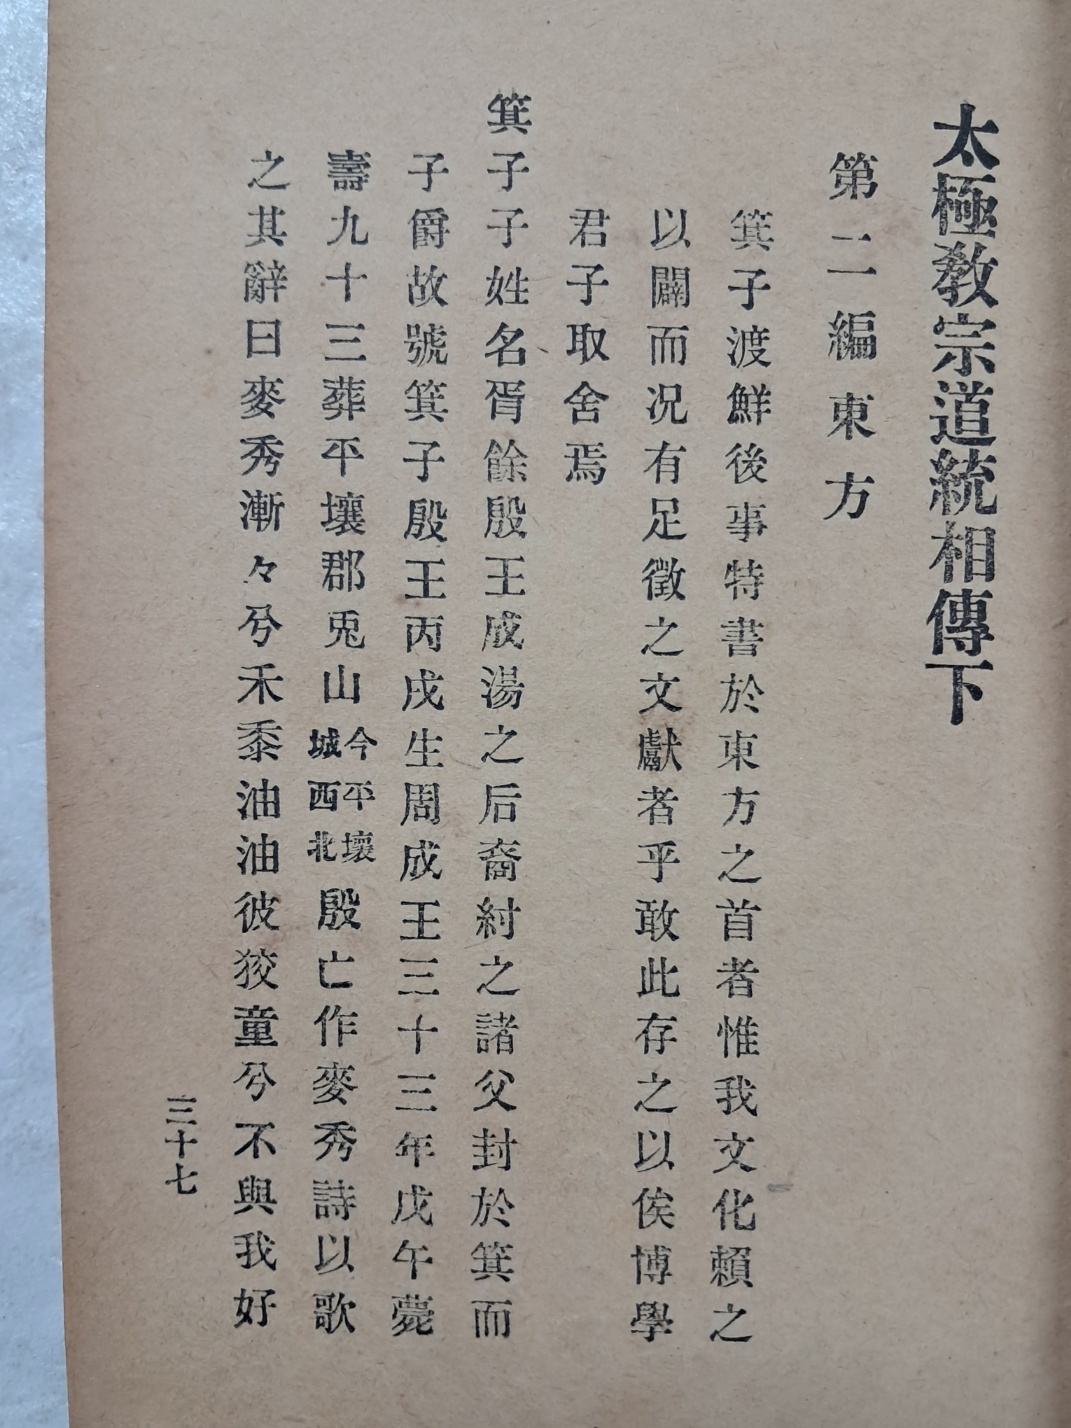 太極敎宗道統相傳下
第二編東方
箕子渡鮮後事特書於東方之首者惟我文化賴之
以闢而况有足徵之文獻者乎敢此存之以俟博學
君子取舍焉
箕子子姓名胥餘殷王成湯之后裔紂之諸父封於箕而
子爵故號箕子殷王丙戌生周成王三十三年戊午薨
壽九十三葬平壤郡兎山今平壤城西北殷亡作麥秀詩以歌
之其辭曰麥秀漸々兮禾黍油油彼狡童兮不與我好
三十七